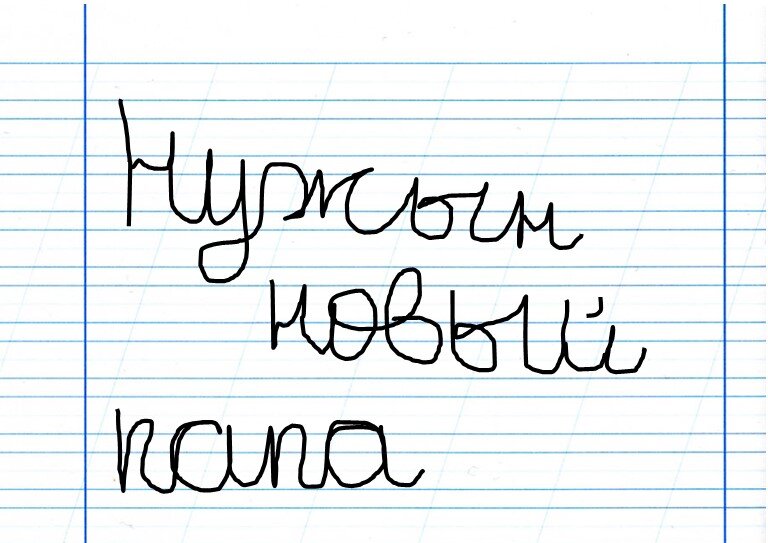 Нужын
новый
папа